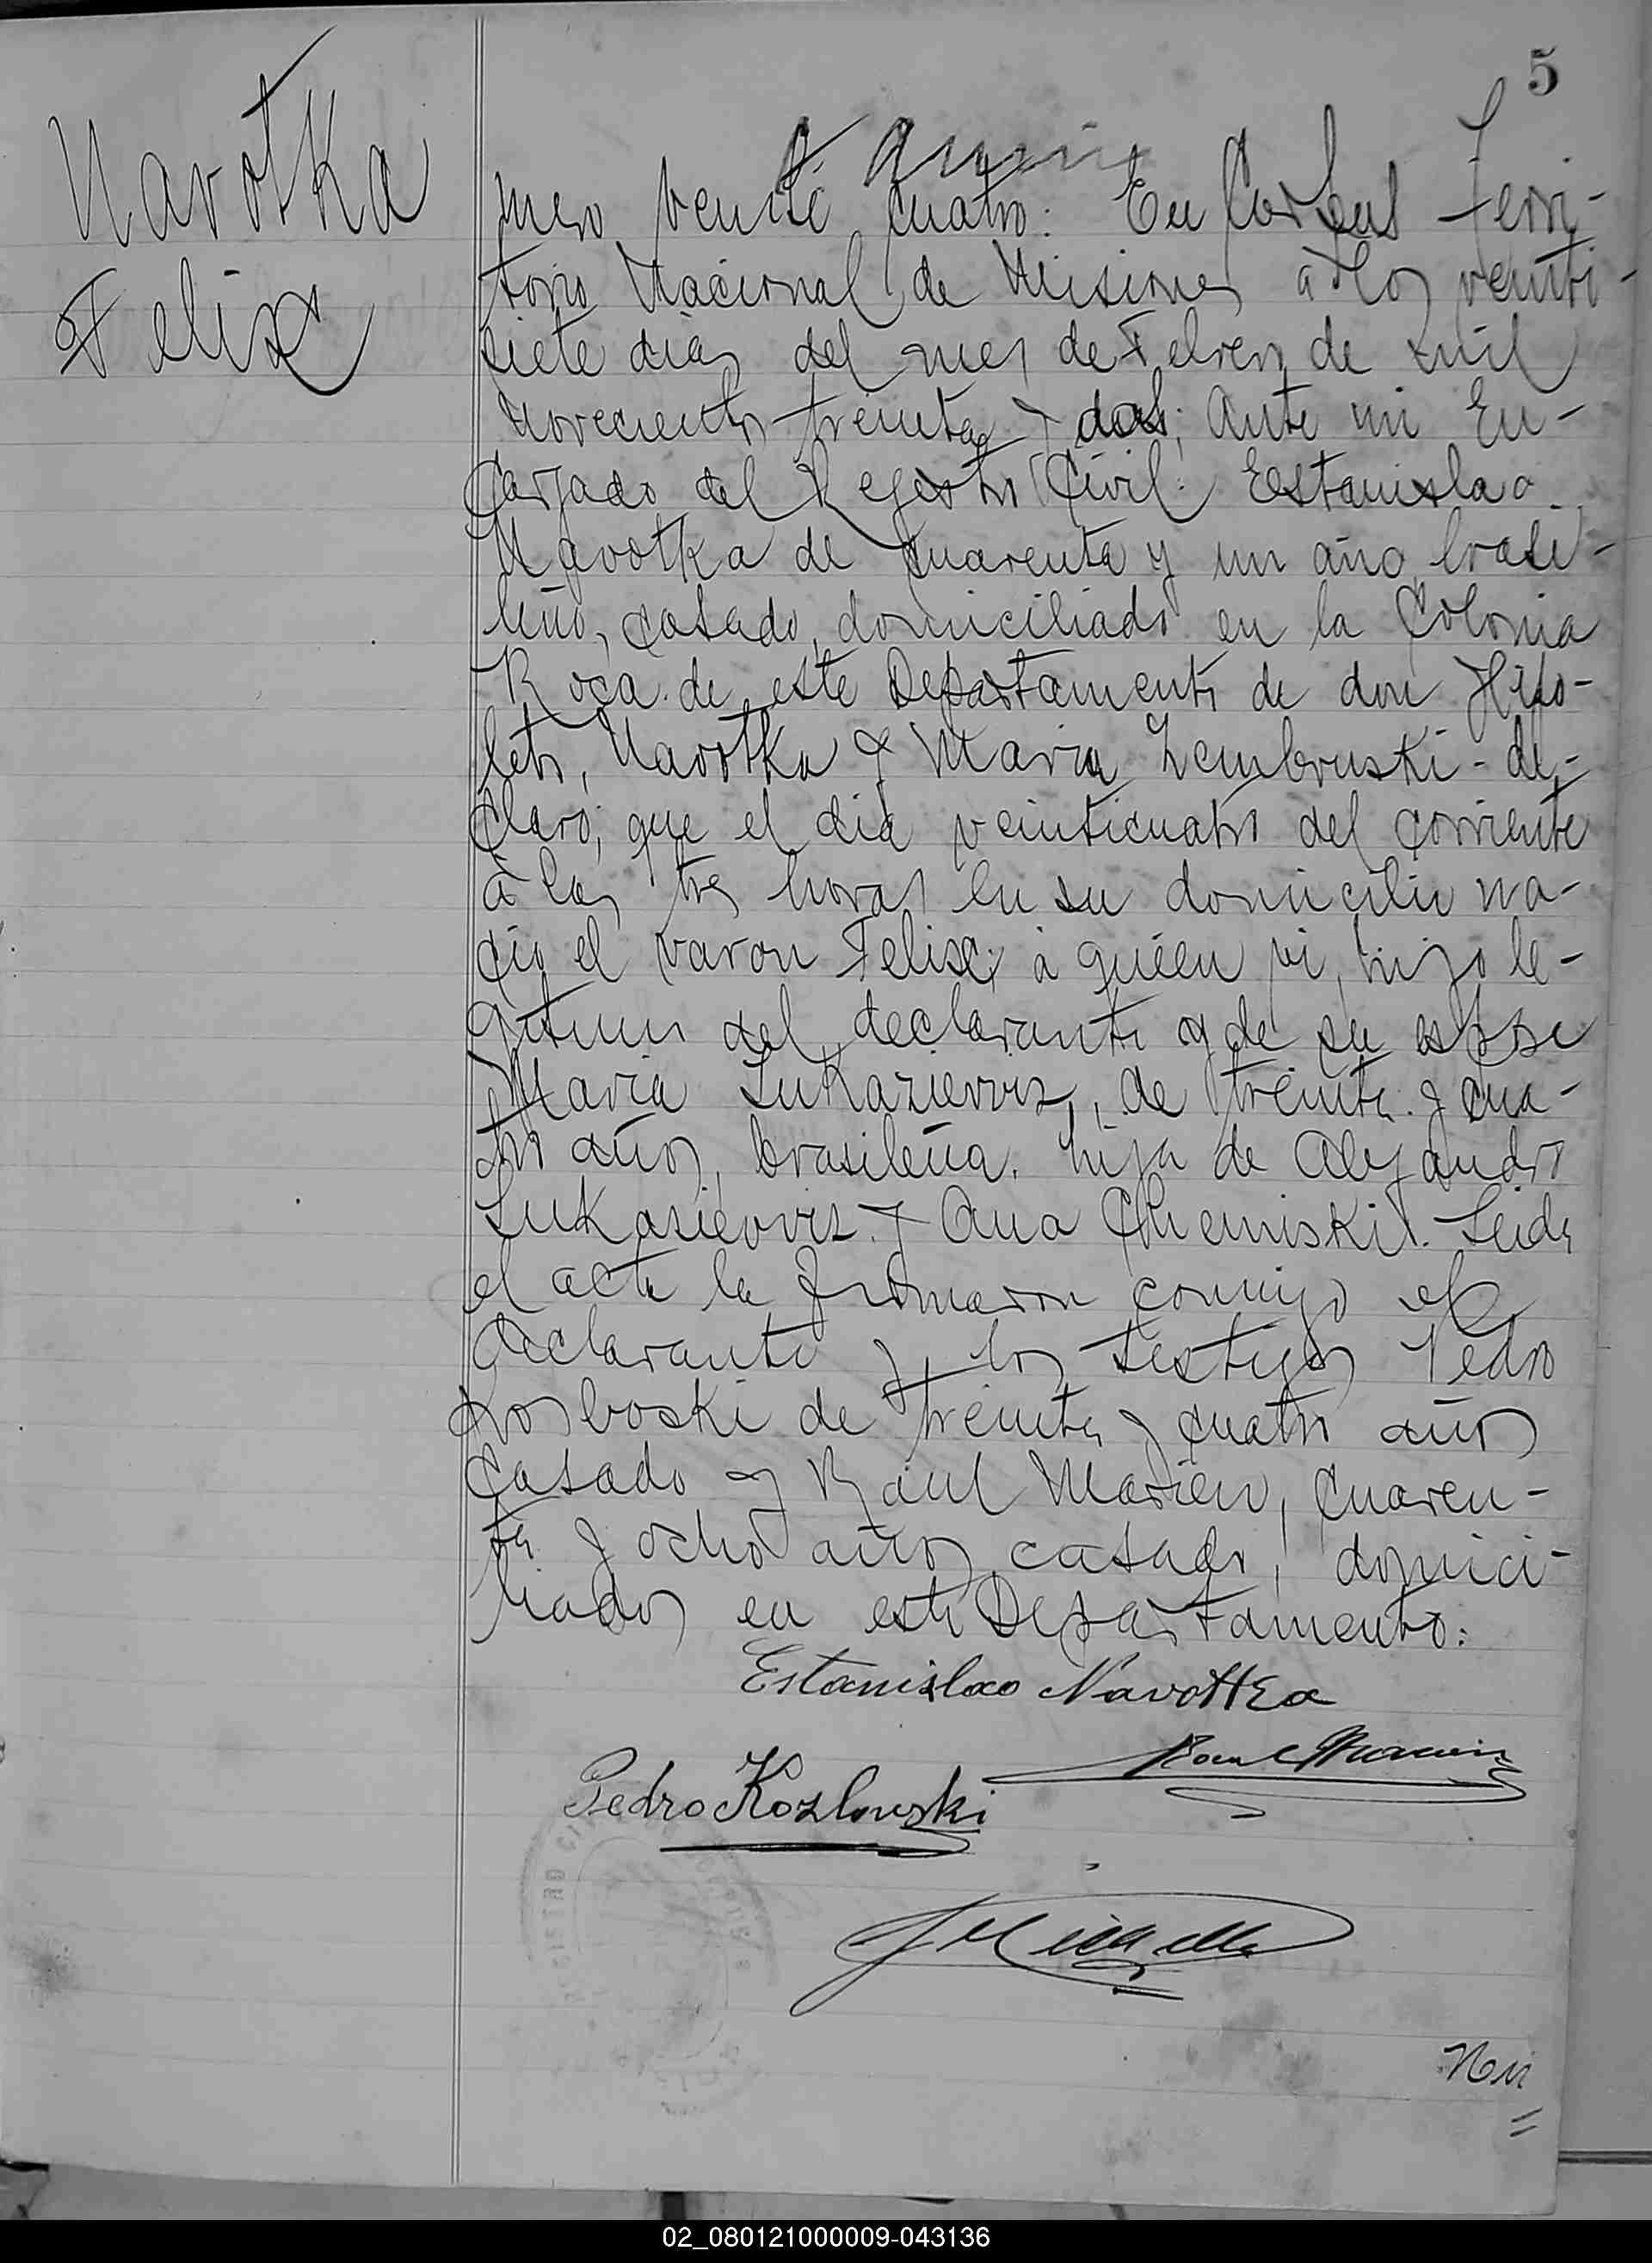 5
Navotka
Felix
mero veinti cuatro: En Corpus Terri-
torio Nacional de Misiones á los veinti-
siete dias del mes de Febrero de mil
novecientos treinta y dos; Ante mi En-
cargado del Registro Civil: Estanislao
Navotka de cuarenta y un año, brasi-
leño, casado, domiciliado en la Colonia
Roca de este Departamento de don Hipo-
leto, Navotka y Maria Zembruski - de-
claró; que el dia veinticuatro del corriente
á las tres horas en su domicilio na-
ció el varon Felix; á quien vi, hijo le-
gitimo del declarante y de su esposa
Maria Lukazievviz, de treinta y cua-
tro años, brasileña, hija de Alejandro
Lukasievviz y Ana Chemiski. Leida
el acta la firmaron conmigo el
declarante y los testigos Pedro
de treinta y cuatro años
casado y Raul Marien, cuaren-
ta y ocho años, casado, domici-
liados en este Departamento:
Estanislao Navotka
Raul Marien
Pedro Kozlowski
REGISTRO CIVIL
02_080121000009-043136